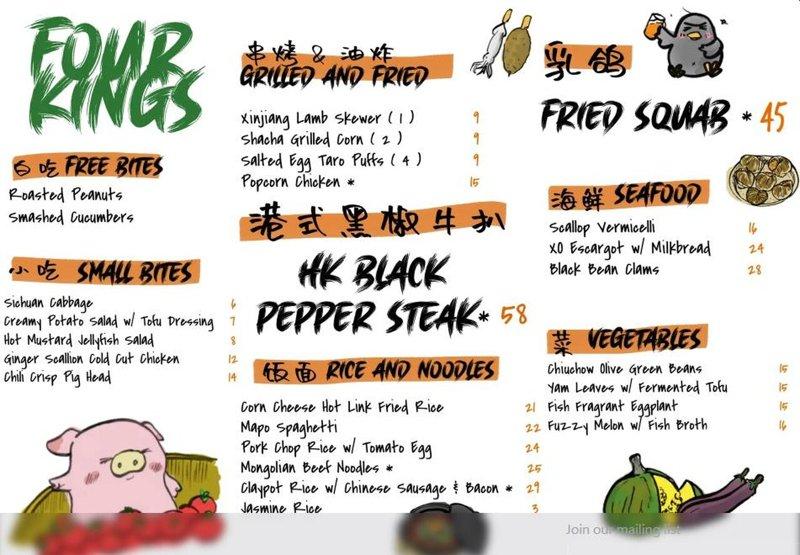 FOUR
KINGS
白吃 FREE BITES
Roasted Peanuts
Smashed Cucumbers
小吃 SMALL BITES
Sichuan Cabbage 6
Creamy Potato Salad w/ Tofu Dressing 7
Hot Mustard Jellyfish Salad 8
Ginger Scallion Cold Cut Chicken 12
Chili Crisp Pig Head 14
串烤 & 油炸
GRILLED AND FRIED
Xinjiang Lamb Skewer ( 1 ) 9
Shacha Grilled Corn ( 2 ) 9
Salted Egg Taro Puffs ( 4 ) 9
Popcorn Chicken * 15
港式黑椒牛扒
HK BLACK
PEPPER STEAK* 58
饭面 RICE AND NOODLES
Corn Cheese Hot Link Fried Rice 21
Mapo Spaghetti 22
Pork Chop Rice w/ Tomato Egg 24
Mongolian Beef Noodles * 25
Claypot Rice w/ Chinese Sausage & Bacon * 29
Jasmine Rice 3
乳鸽
FRIED SQUAB * 45
海鲜 SEAFOOD
Scallop Vermicelli 16
XO Escargot w/ Milkbread 24
Black Bean Clams 28
菜 VEGETABLES
Chiuchow Olive Green Beans 15
Yam Leaves w/ Fermented Tofu 15
Fish Fragrant Eggplant 15
Fuzzy Melon w/ Fish Broth 16
Join our mailing list